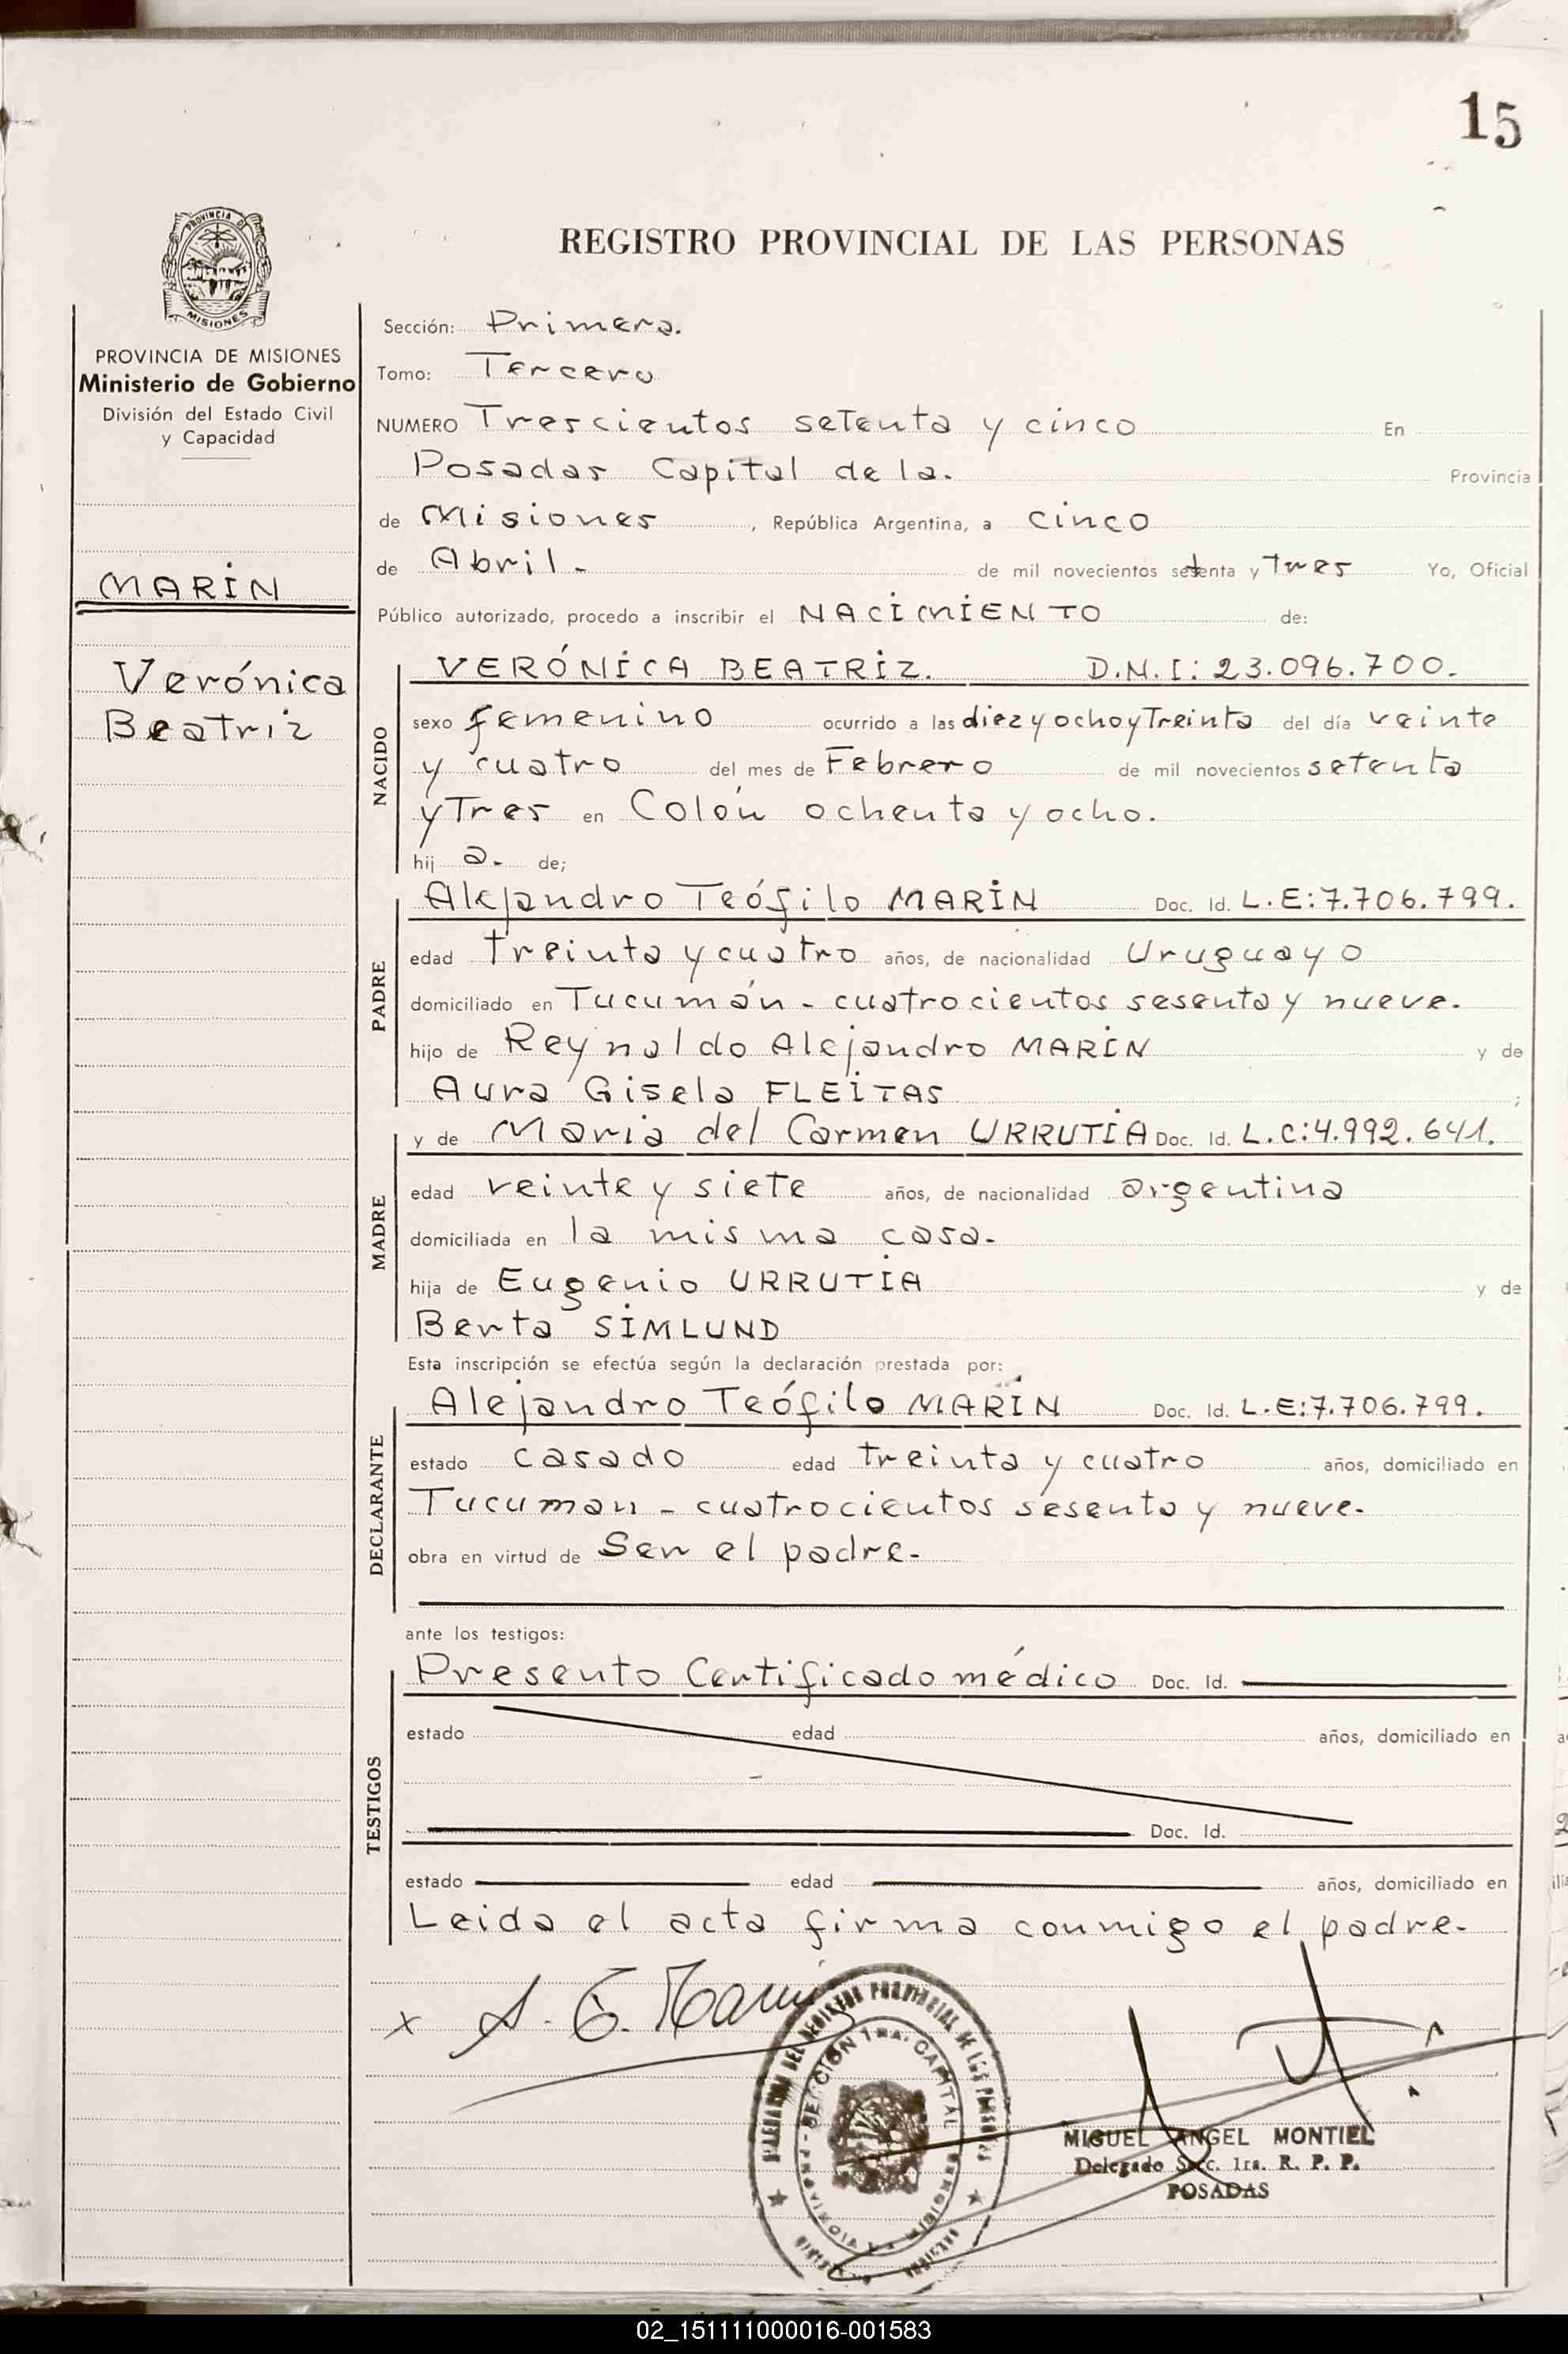 15
PROVINCIA DE
MISIONES
REGISTRO PROVINCIAL DE LAS PERSONAS
PROVINCIA DE MISIONES
Ministerio de Gobierno
División del Estado Civil
y Capacidad
MARIN
Verónica
Beatriz
Sección: Primera.
Tomo: Tercero
NUMERO Trescientos setenta y cinco En
Posadas Capital de la. Provincia
de Misiones, República Argentina, a cinco
de Abril. de mil novecientos setenta y tres Yo, Oficial
Público autorizado, procedo a inscribir el NACIMIENTO de:
NACIDO
VERÓNICA BEATRIZ. D.N.I: 23.096.700.
sexo femenino ocurrido a las diez y ocho y Treinta del día veinte
y cuatro del mes de Febrero de mil novecientos setenta
y Tres en Colón ochenta y ocho.
hij a. de;
PADRE
Alejandro Teófilo MARIN Doc. Id. L.E:7.706.799.
edad treinta y cuatro años, de nacionalidad Uruguayo
domiciliado en Tucumán - cuatrocientos sesenta y nueve.
hijo de Reynaldo Alejandro MARIN y de
Aura Gisela FLEITAS ;
MADRE
y de Maria del Carmen URRUTIA Doc. Id. L.C:4.992.641.
edad veinte y siete años, de nacionalidad argentina
domiciliada en la misma casa.
hija de Eugenio URRUTIA y de
Berta SIMLUND
Esta inscripción se efectúa según la declaración prestada por:
DECLARANTE
Alejandro Teófilo MARIN Doc. Id. L.E:7.706.799.
estado casado edad treinta y cuatro años, domiciliado en
Tucuman - cuatrocientos sesenta y nueve.
obra en virtud de Ser el padre.
ante los testigos:
TESTIGOS
Presento Certificado médico Doc. Id.
estado edad años, domiciliado en
Doc. Id.
estado edad años, domiciliado en
Leida el acta firma conmigo el padre.
x A. T. Marin
DEL REGISTRO PROVINCIAL DE LAS PERSONAS
SECCION 1RA. CAPITAL
MIGUEL ANGEL MONTIEL
Delegado Secc. 1ra. R. P. P.
POSADAS
02_151111000016-001583